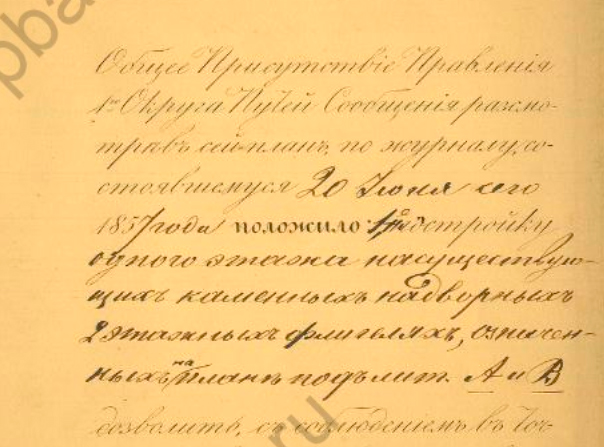 Общее Присутствіе Правленія
1го Округа Путей Сообщенія разсмо-
трѣвъ сей планъ, по журналу, со-
стоявшемуся 20 Іюня сего
1857 года положило: надстройку
одного этажа на существую-
щихъ каменныхъ надворныхъ
2 этажныхъ флигеляхъ, означен-
ныхъ на планѣ подъ лит. А и В
дозволить, съ соблюденіемъ въ точ-